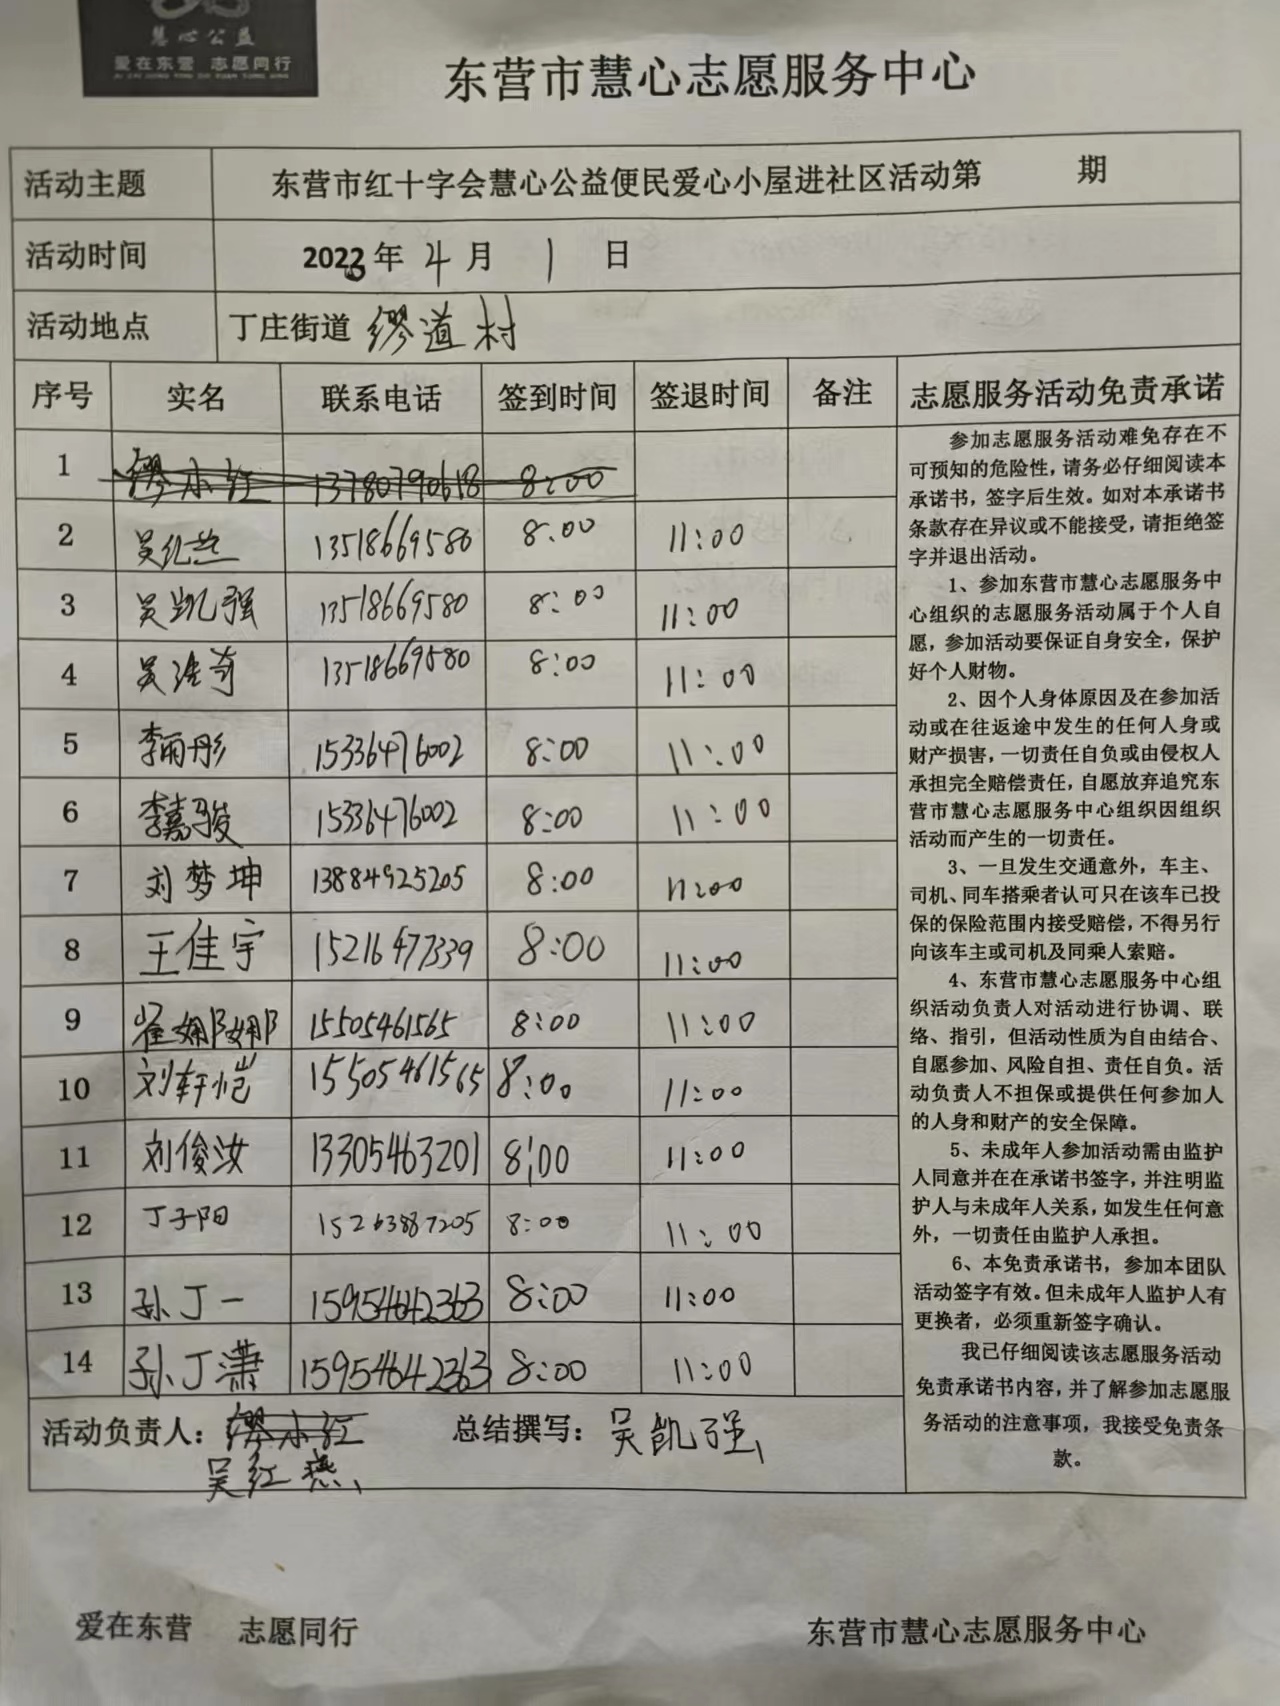 慧心公益
爱在东营 志愿同行
东营市慧心志愿服务中心
活动主题 东营市红十字会慧心公益便民爱心小屋进社区活动第 期
活动时间 2023年 4 月 1 日
活动地点 丁庄街道 缪道村
序号 实名 联系电话 签到时间 签退时间 备注
1 缪小红 13780790618 8:00
2 吴红燕 13518669580 8:00 11:00
3 吴凯强 13518669580 8:00 11:00
4 吴浩奇 13518669580 8:00 11:00
5 李雨彤 15336476002 8:00 11:00
6 李嘉骏 15336476002 8:00 11:00
7 刘梦坤 13884925205 8:00 11:00
8 王佳宇 15216477339 8:00 11:00
9 崔娜娜 15505461565 8:00 11:00
10 刘轩恺 15505461565 8:00 11:00
11 刘俊汝 13305463201 8:00 11:00
12 丁子阳 15263887205 8:00 11:00
13 孙丁一 15954642363 8:00 11:00
14 孙丁潇 15954642363 8:00 11:00
活动负责人：缪小红 总结撰写：吴凯强
吴红燕
志愿服务活动免责承诺
参加志愿服务活动难免存在不
可预知的危险性，请务必仔细阅读本
承诺书，签字后生效。如对本承诺书
条款存在异议或不能接受，请拒绝签
字并退出活动。
1、参加东营市慧心志愿服务中
心组织的志愿服务活动属于个人自
愿，参加活动要保证自身安全，保护
好个人财物。
2、因个人身体原因及在参加活
动或在往返途中发生的任何人身或
财产损害，一切责任自负或由侵权人
承担完全赔偿责任，自愿放弃追究东
营市慧心志愿服务中心组织因组织
活动而产生的一切责任。
3、一旦发生交通意外，车主、
司机、同车搭乘者认可只在该车已投
保的保险范围内接受赔偿，不得另行
向该车主或司机及同乘人索赔。
4、东营市慧心志愿服务中心组
织活动负责人对活动进行协调、联
络、指引，但活动性质为自由结合、
自愿参加、风险自担、责任自负。活
动负责人不担保或提供任何参加人
的人身和财产的安全保障。
5、未成年人参加活动需由监护
人同意并在在承诺书签字，并注明监
护人与未成年人关系，如发生任何意
外，一切责任由监护人承担。
6、本免责承诺书，参加本团队
活动签字有效。但未成年人监护人有
更换者，必须重新签字确认。
我已仔细阅读该志愿服务活动
免责承诺书内容，并了解参加志愿服
务活动的注意事项，我接受免责条
款。
爱在东营 志愿同行 东营市慧心志愿服务中心